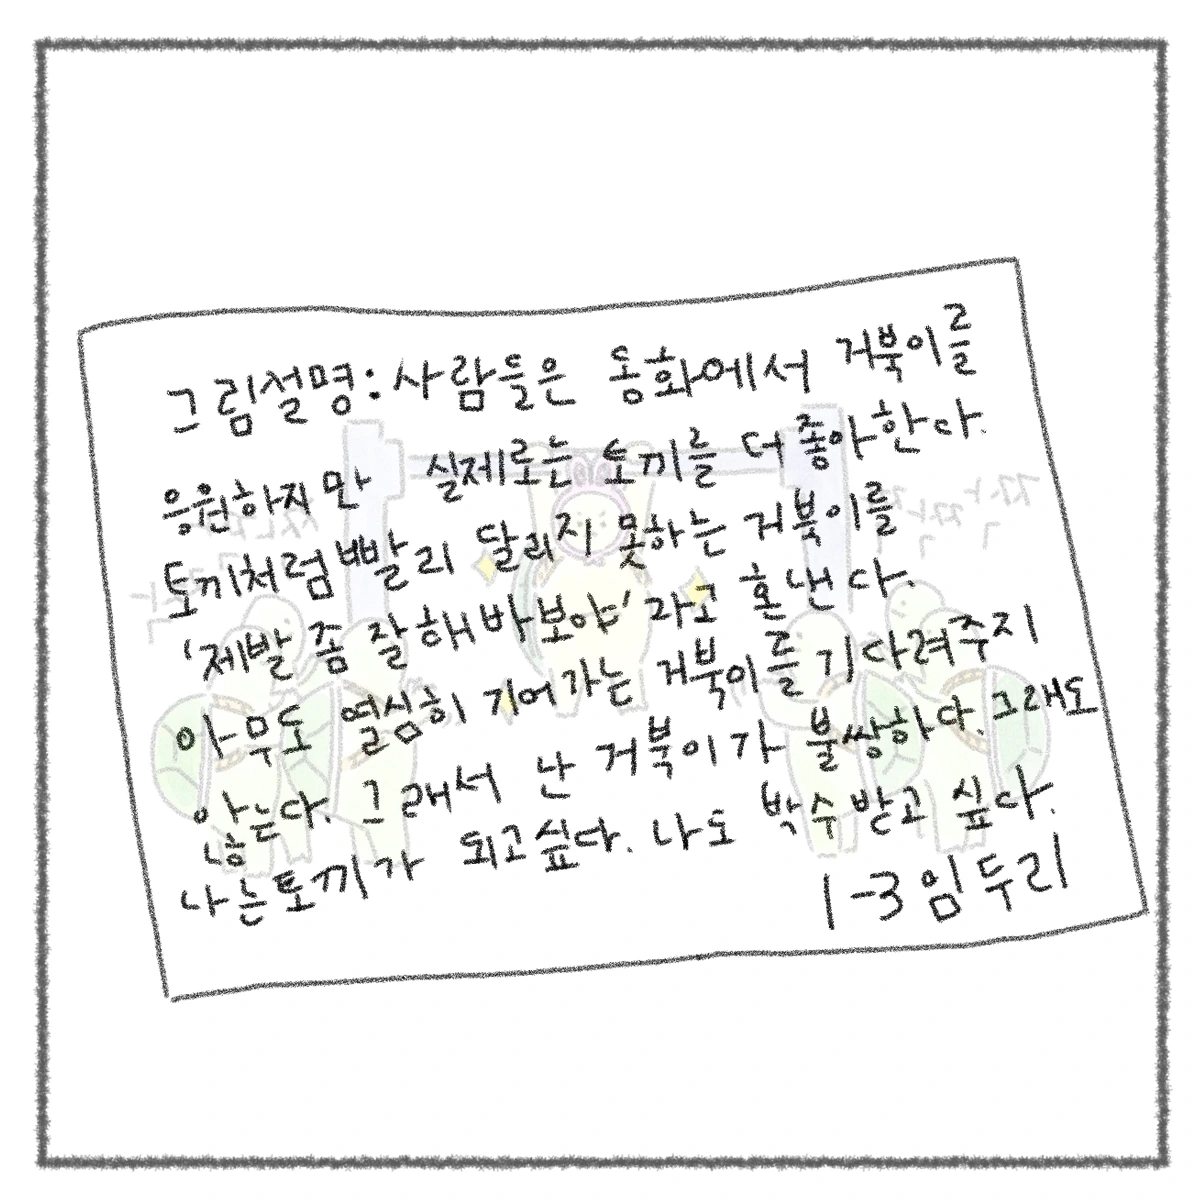 그림설명: 사람들은 동화에서 거북이를
응원하지만 실제로는 토끼를 더 좋아한다.
토끼처럼 빨리 달리지 못하는 거북이를
'제발 좀 잘해봐보야' 라고 혼낸다.
아무도 열심히 기어가는 거북이를 기다려주지
않는다. 그래서 난 거북이가 불쌍하다. 그래도
나는 토끼가 되고싶다. 나도 박수 받고 싶다.
1-3 임두리